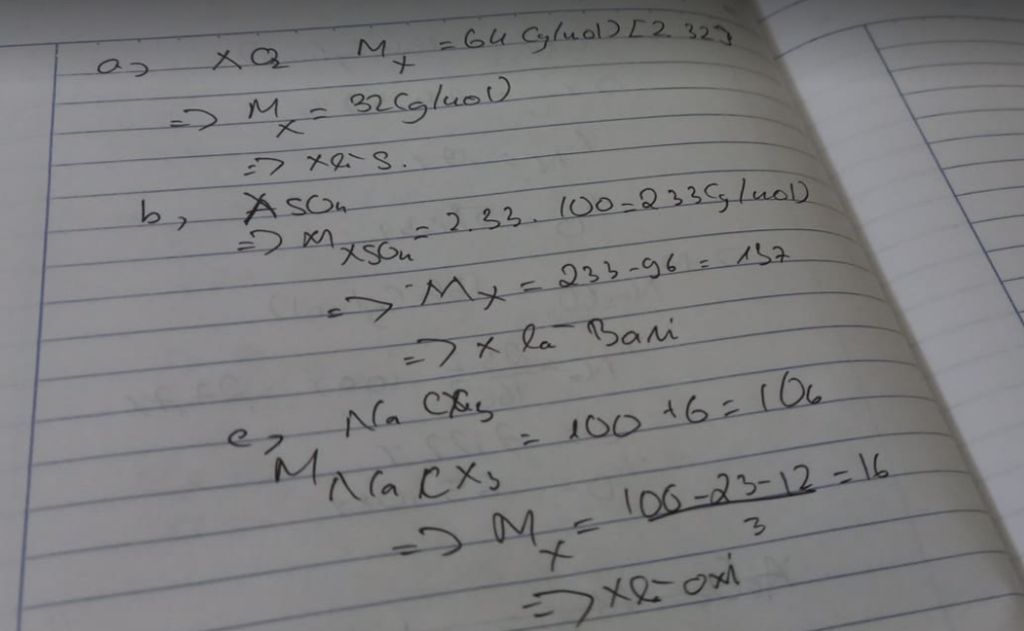 a, XO2 M X = 64 (g/mol) [2.32]
=> M X = 32 (g/mol)
=> X là S.
b, XSO4
=> M XSO4 = 2.33.100 = 233 (g/mol)
=> M X = 233 - 96 = 137
=> X là Bari
c, NaCX3
M NaCX3 = 100 + 6 = 106
=> M X = 106 - 23 - 12 / 3 = 16
=> X là oxi